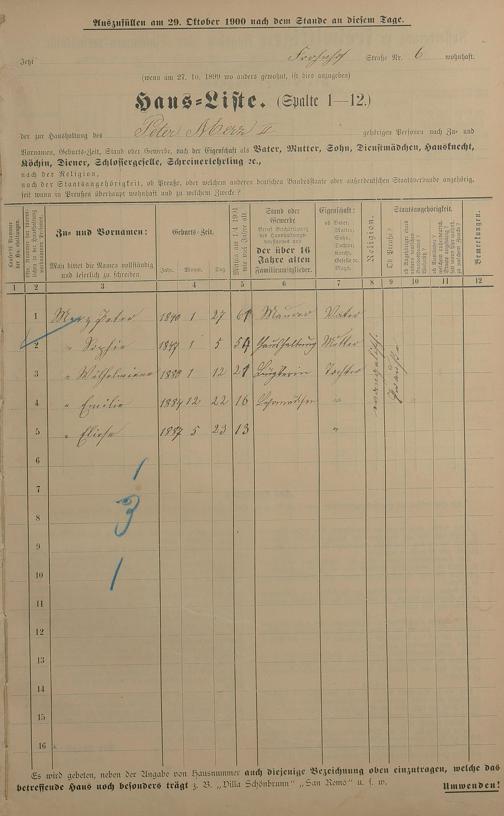 Auszufüllen am 29. Oktober 1900 nach dem Stande an diesem Tage.
Jetzt Frohnhof Straße Nr. 6 wohnhaft.
(wenn am 27. 10. 1899 wo anders gewohnt, ist dies anzugeben)
Haus=Liste. (Spalte 1—12.)
der zur Haushaltung des Peter Merz II gehörigen Personen nach Zu- und
Vornamen, Geburts-Zeit, Stand oder Gewerbe, nach der Eigenschaft als Vater, Mutter, Sohn, Dienstmädchen, Hausknecht,
Köchin, Diener, Schlossergeselle, Schreinerlehrling ꝛc.,
nach der Religion,
nach der Staatsangehörigkeit, ob Preuße, oder welchem anderen deutschen Bundesstaate oder außerdeutschen Staatsverbande angehörig,
seit wann in Preußen überhaupt wohnhaft und zu welchem Zwecke?
Zu- und Vornamen:
Man bittet die Namen vollständig und leserlich zu schreiben
Geburts-Zeit.
Jahr. Monat. Tag.
Stand oder Gewerbe
der über 16 Jahre alten Familienmitglieder.
Eigenschaft:
ob Vater, Mutter, Sohn, Tochter,
Religion.
Ob Preuße?
Staatsangehörigkeit.
Bemerkungen.
1 2 3 4 5 6 7 8 9 10 11 12
1 Merz Peter 1840 1 27 61 Maurer Vater
2 " Sophie 1847 1 5 54 Haushaltung Mutter
3 " Wilhelmiene 1880 1 12 21 Büglerin Tochter
4 " Emilie 1884 12 22 16 "
5 " Eliese 1887 5 23 13 "
evangelisch
Preuße
6
1
7
3
8
9
10
1
11
12
13
14
15
16
Es wird gebeten, neben der Angabe von Hausnummer auch diejenige Bezeichnung oben einzutragen, welche das
betreffende Haus noch besonders trägt z. B. „Villa Schönbrunn" „San Remo" u. s. w. Umwenden!